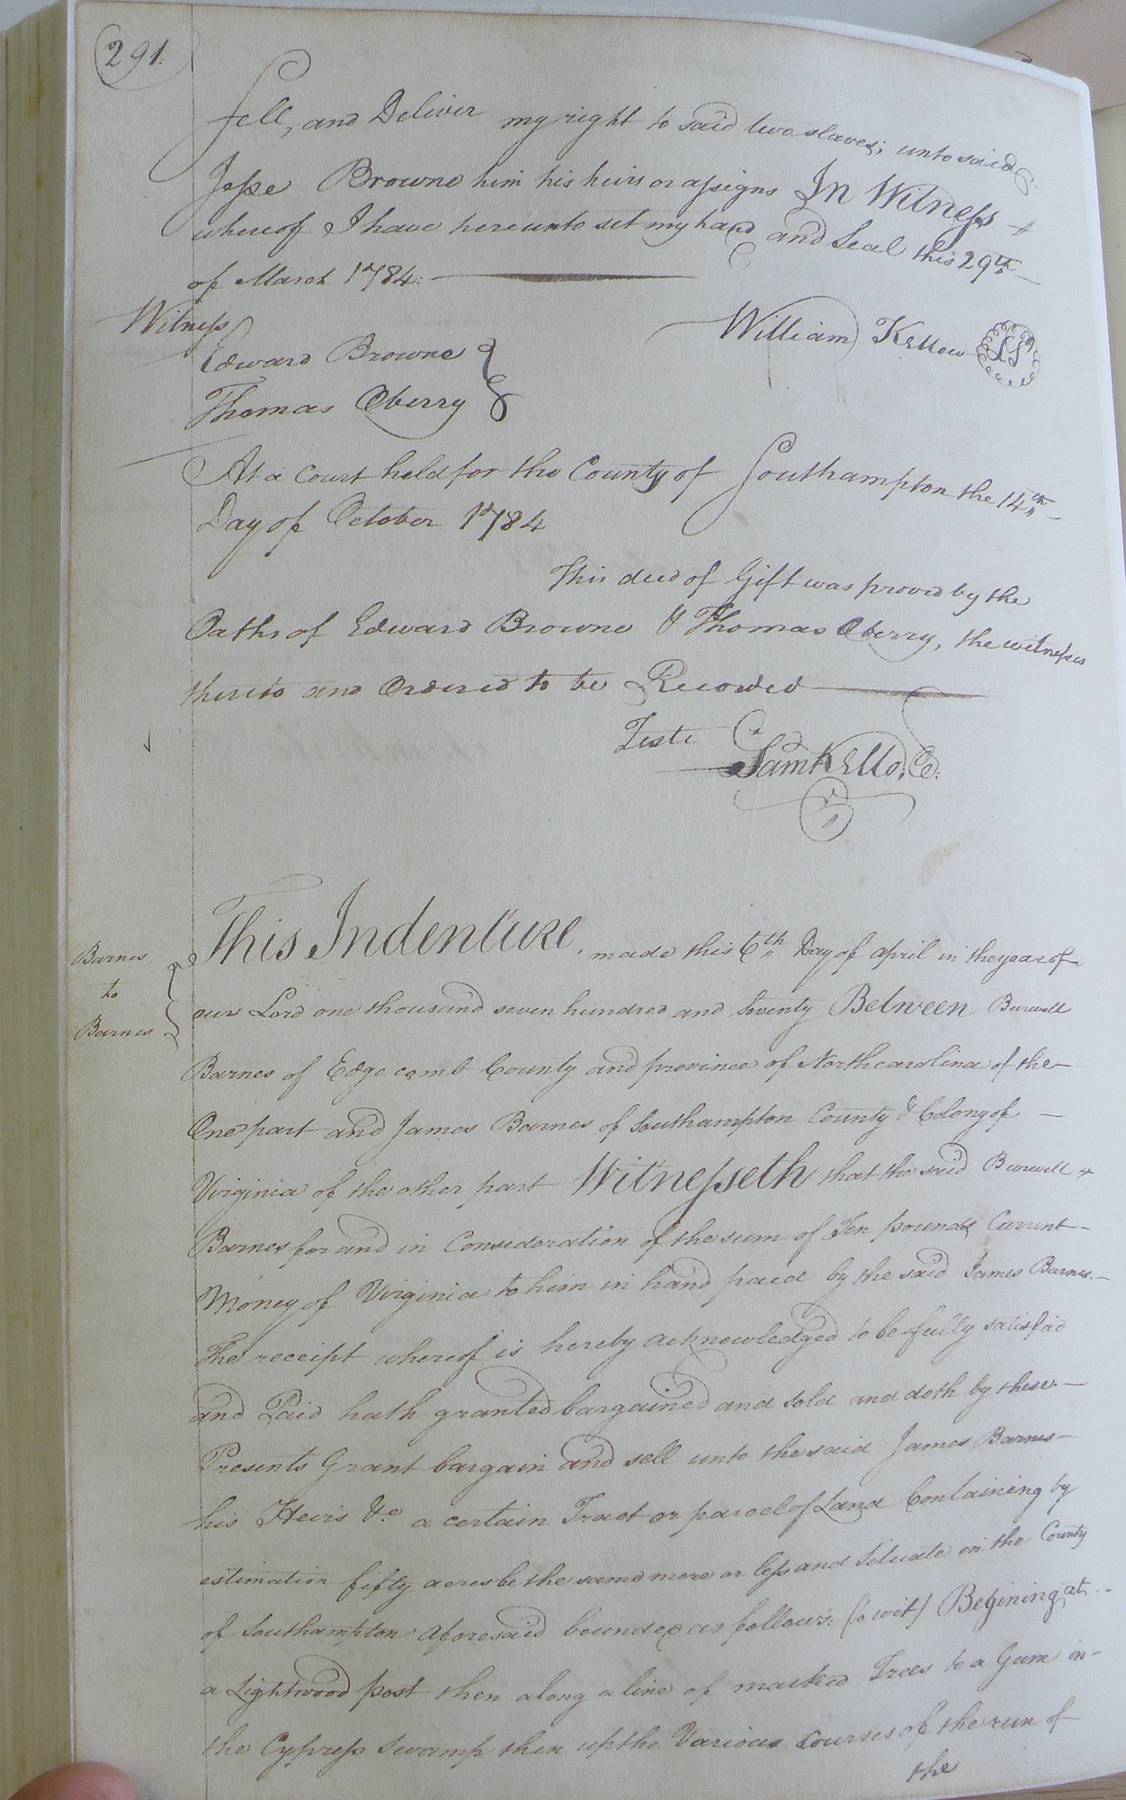 291.
sell, and Deliver my right to said two slaves; unto said
Jesse Browne him his heirs or assigns In Witness
whereof I have hereunto set my hand and Seal this 29th
of March 1784.
Witness
William Kellow LS
Edward Browne
Thomas Oberry
At a Court held for the County of Southampton the 14th
Day of October 1784
This deed of Gift was proved by the
Oaths of Edward Browne & Thomas Oberry, the witnesses
thereto and Ordered to be Recorded
Teste
Sam Kello, C.
Barnes
to
Barnes
This Indenture, made this 6th Day of april in the year of
our Lord one thousand seven hundred and Seventy Between Burwell
Barnes of Edgecomb County and province of Northcarolina of the
One part and James Barnes of Southampton County & Colony of
Virginia of the other part Witnesseth that the said Burwell
Barnes for and in Consideration of the sum of Ten pounds Current
Money of Virginia to him in hand paid by the said James Barnes
The receipt whereof is hereby acknowledged to be fully satisfied
and Paid hath granted bargained and sold and doth by these
Presents Grant bargain and sell unto the said James Barnes
his Heirs &c a certain Tract or parcel of Land Containing by
estimation fifty acres be the same more or less and Situate in the County
of Southampton aforesaid bounded as follows: (to wit) Begining at
a Lightwood post then along a line of marked Trees to a Gum in
the Cypress Swamp then up the Various Courses of the run of
the